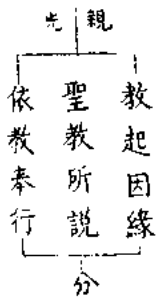 親光
教起因緣
聖教所説
依教奉行
分